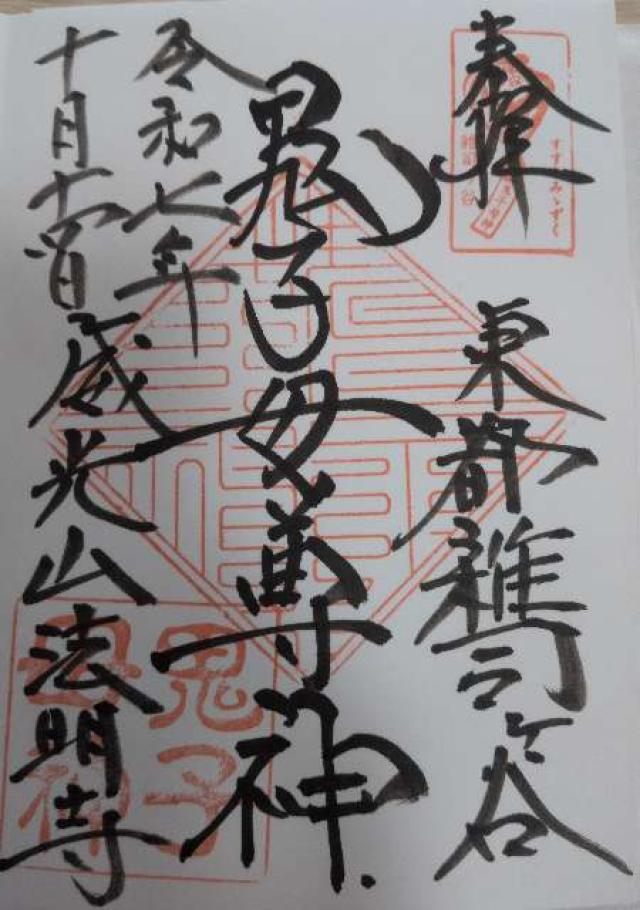 奉拝
東都雑司ヶ谷
すすきみゝずく
雑司ヶ谷
鬼子母尊神
令和七年
十月十六日
威光山法明寺
鬼子
母神